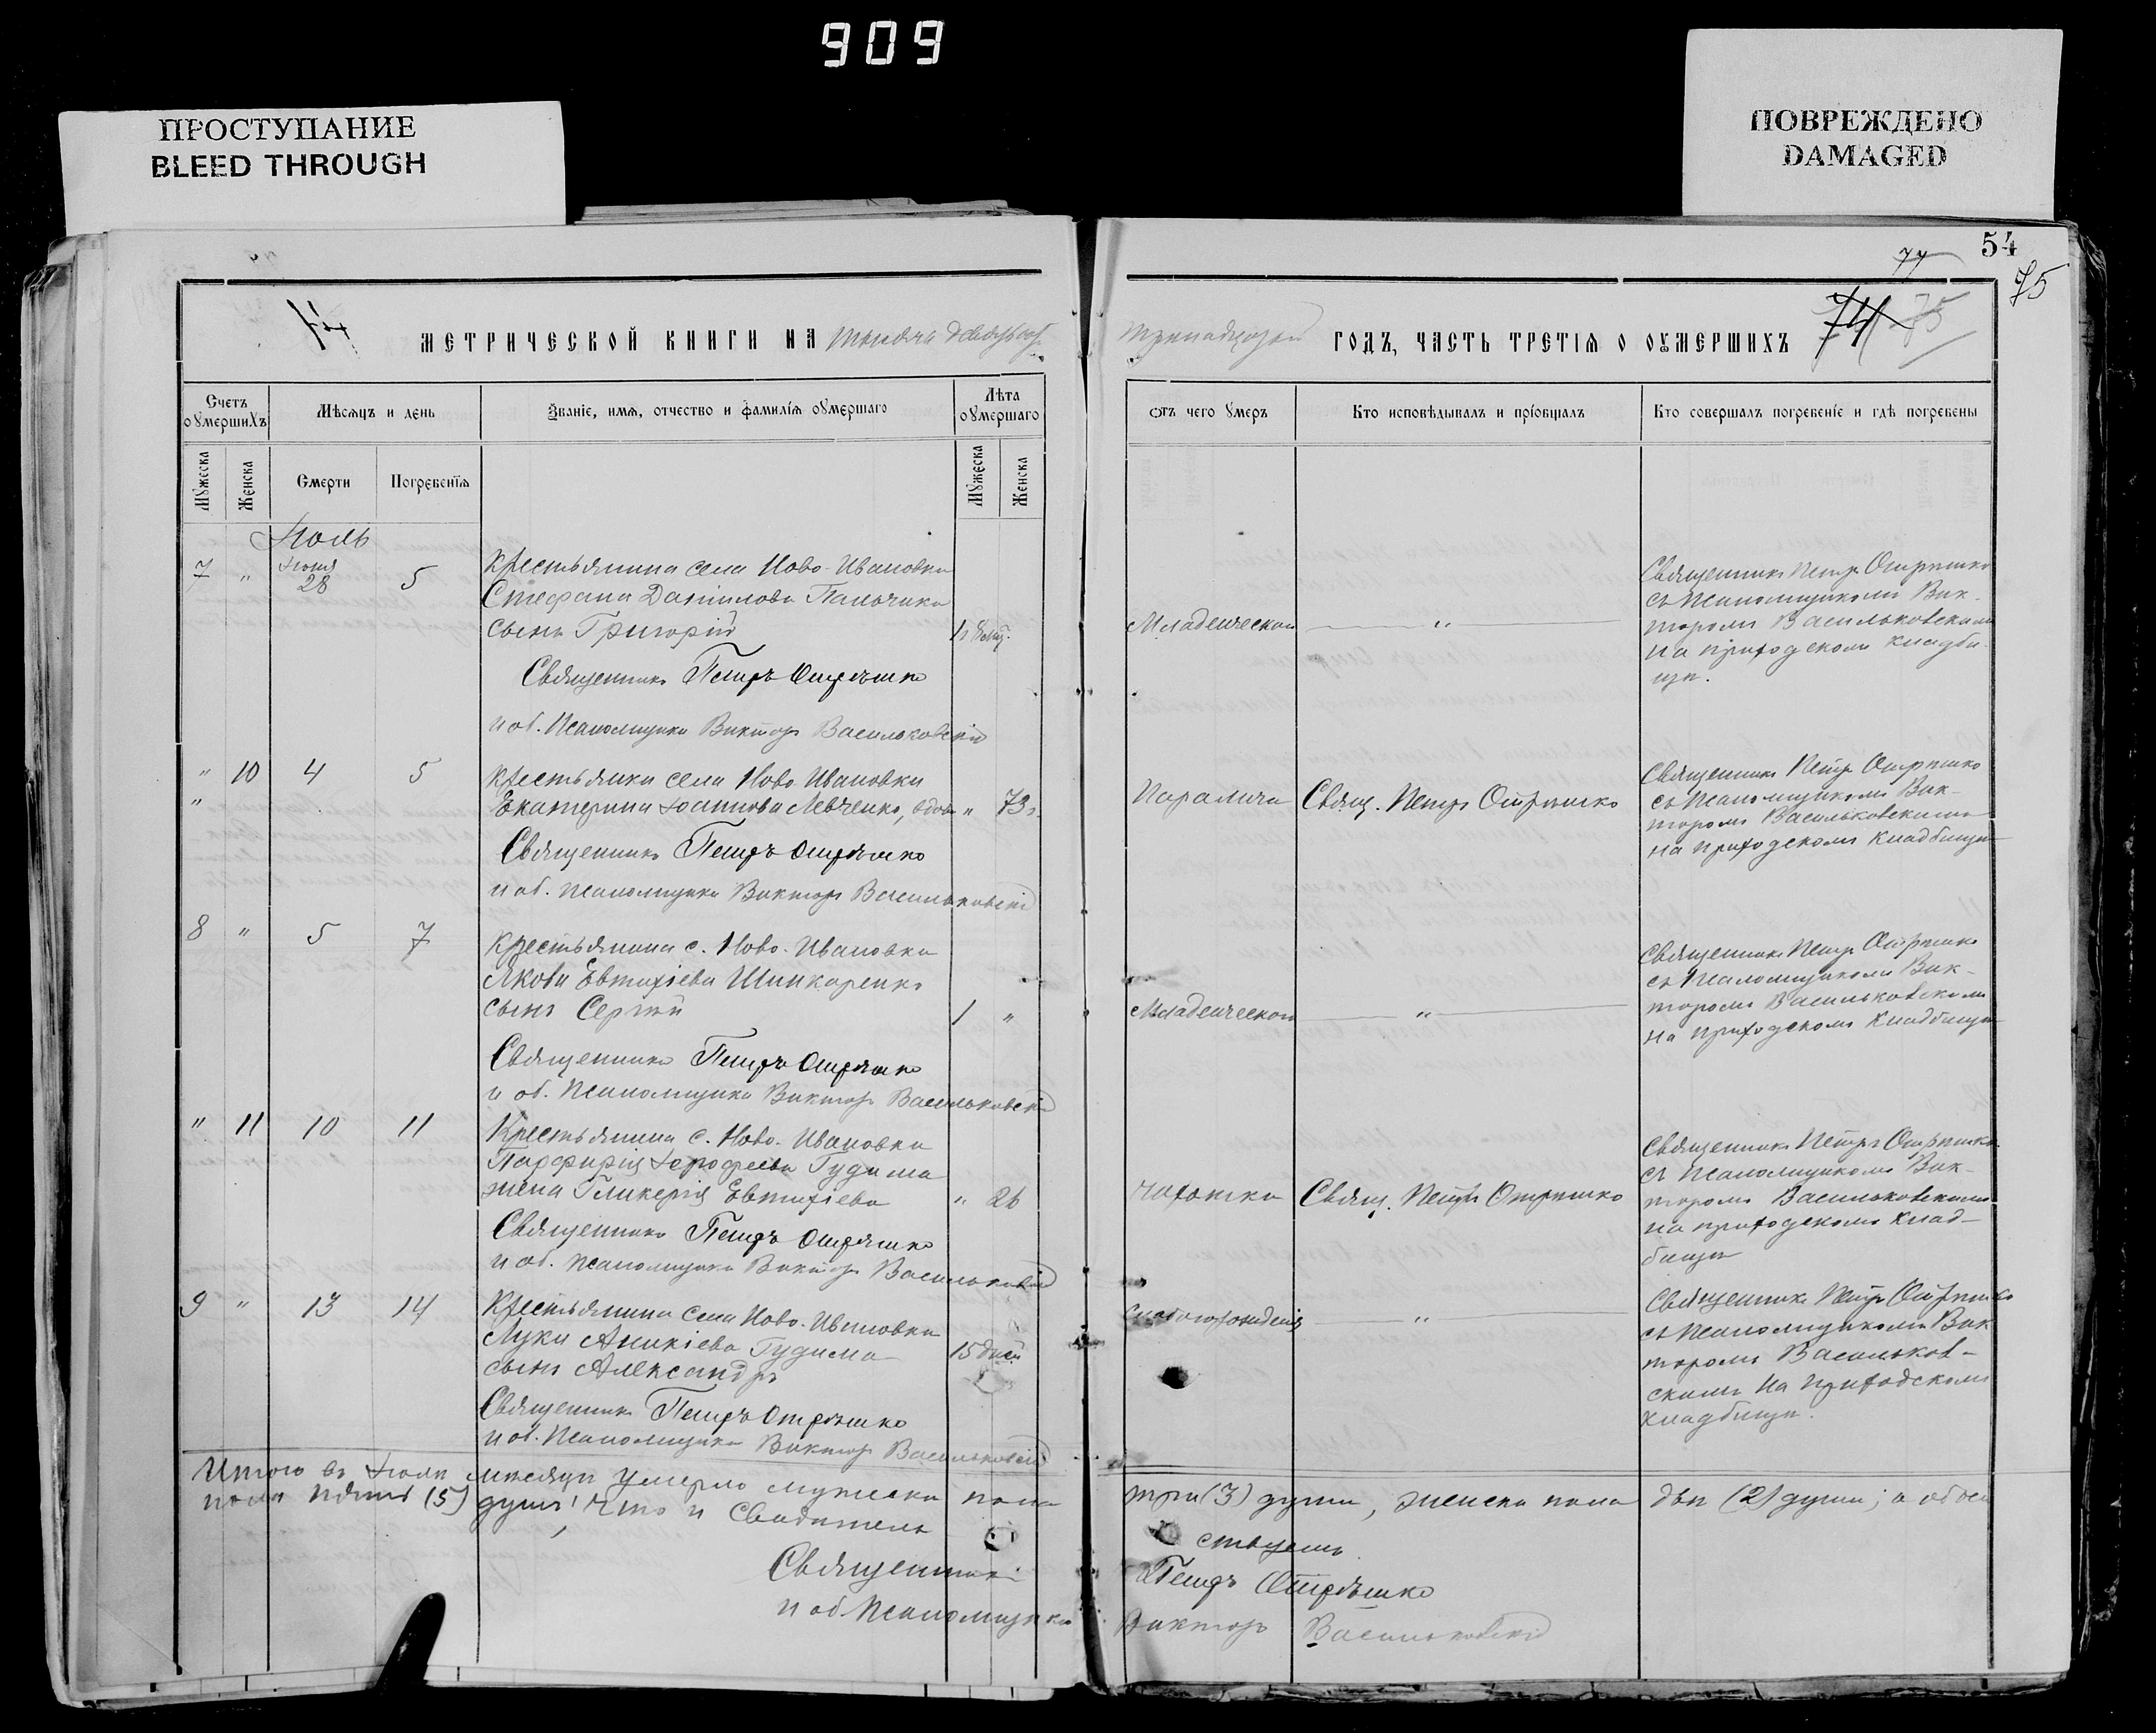 909
ПРОСТУПАНИЕ
BLEED THROUGH
ПОВРЕЖДЕНО
DAMAGED
54
77
75
74
74 75
МЕТРИЧЕСКОЙ КНИГИ НА тысяча девятьсот
тринадцатый ГОДЪ, ЧАСТЬ ТРЕТІѦ О ОУМЕРШИХЪ
Счетъ оумершихъ
Мѣсяцъ и день
Званіе, имѧ, отчество и фамиліѧ оумершаго
Лѣта оумершаго
отъ чего умеръ
Кто исповѣдывалъ и пріобщалъ
Кто совершалъ погребеніе и гдѣ погребены
Мужеска
Женска
Смерти
Погребеніѧ
Мужеска
Женска
Іюль
7 " Іюня 28 5
Крестьянина села Ново-Ивановки
Стефана Данилова Пальчика
сынъ Григорій 1 г 8 мѣс.
Священникъ Петръ Отрѣшко
и об. псаломщика Викторъ Васильковскій
Младенческой "
Священникъ Петръ Отрѣшко
съ псаломщикомъ Вик-
торомъ Васильковскимъ
на приходскомъ кладби-
щѣ.
" 10 4 5
"
Крестьянка села Ново Ивановки
Екатерина Іоаннова Левченко, вдова " 73 г.
Священникъ Петръ Отрѣшко
и об. псаломщика Викторъ Васильковскій
Паралича Свящ. Петръ Отрѣшко
Священникъ Петръ Отрѣшко
съ псаломщикомъ Вик-
торомъ Васильковскимъ
на приходскомъ кладбищѣ
8 " 5 7
Крестьянина с. Ново-Ивановки
Якова Евтихіева Шинкаренко
сынъ Сергій 1 "
Священникъ Петръ Отрѣшко
и об. псаломщика Викторъ Васильковскій
Младенческой "
Священникъ Петръ Отрѣшко
съ псаломщикомъ Вик-
торомъ Васильковскимъ
на приходскомъ кладбищѣ
" 11 10 11
Крестьянина с. Ново-Ивановки
Парфирія Іерофеева Гудима
жена Гликерія Евтихіева " 26
Священникъ Петръ Отрѣшко
и об. псаломщика Викторъ Васильковскій
Чахотка Свящ. Петръ Отрѣшко
Священникъ Петръ Отрѣшко
съ псаломщикомъ Вик-
торомъ Васильковскимъ
на приходскомъ клад-
бищѣ
9 " 13 14
Крестьянина села Ново-Ивановки
Луки Аникіева Гудима
сынъ Александръ 15 дней
Священникъ Петръ Отрѣшко
и об. псаломщика Викторъ Васильковскій
"
Священникъ Петръ Отрѣшко
съ псаломщикомъ Вик
торомъ Васильков-
скимъ на приходскомъ
кладбищѣ.
Итого въ Іюлѣ мѣсяцѣ умерло мужеска пола три (3) души, женска пола двѣ (2) души; а обоего
пола пять (5) душъ, что и свидетель
ствуемъ
Священникъ Петръ Отрѣшко
и об. псаломщика Викторъ Васильковскій